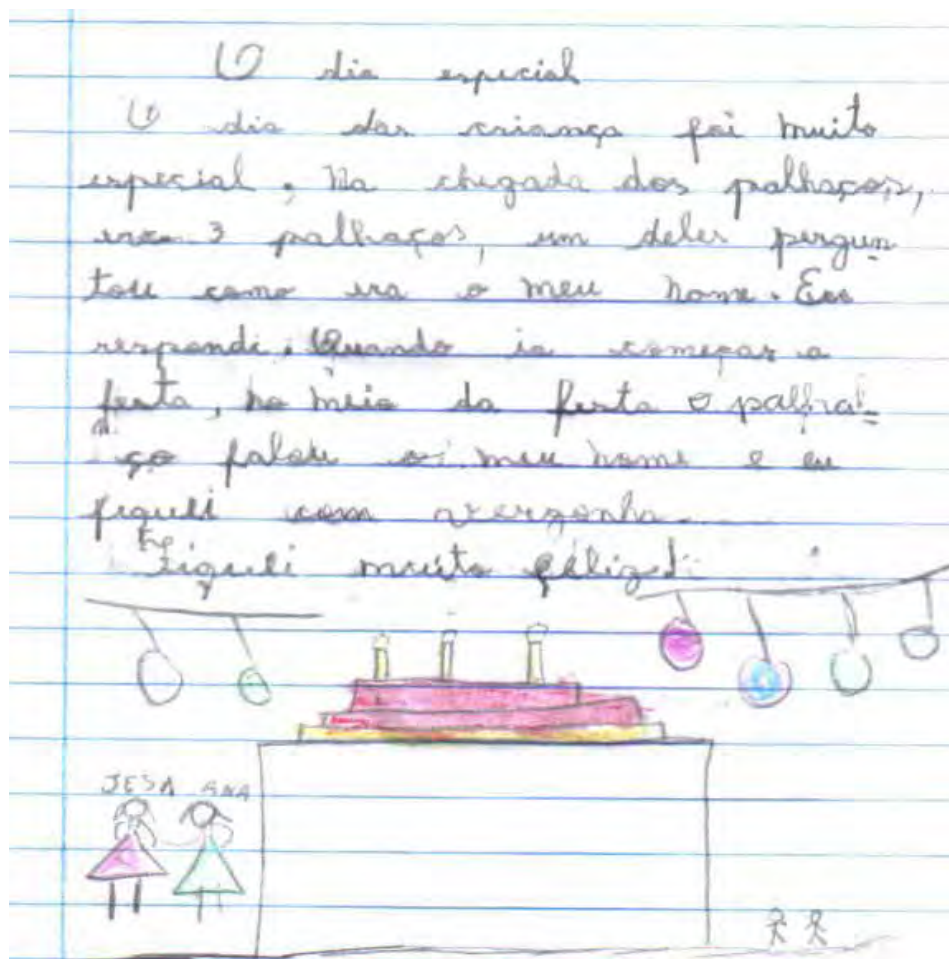 O dia especial
O dia das criança foi muito
especial, Na chegada dos palhaços,
era 3 palhaços, um deles pergun
tou como era o meu nome. Eu
respondi. Quando ia começar a
festa, no meio da festa o palha-
ço falou o meu nome e eu
fiqueli com vergonha
Fiqueli muito feliz
JESA ANA